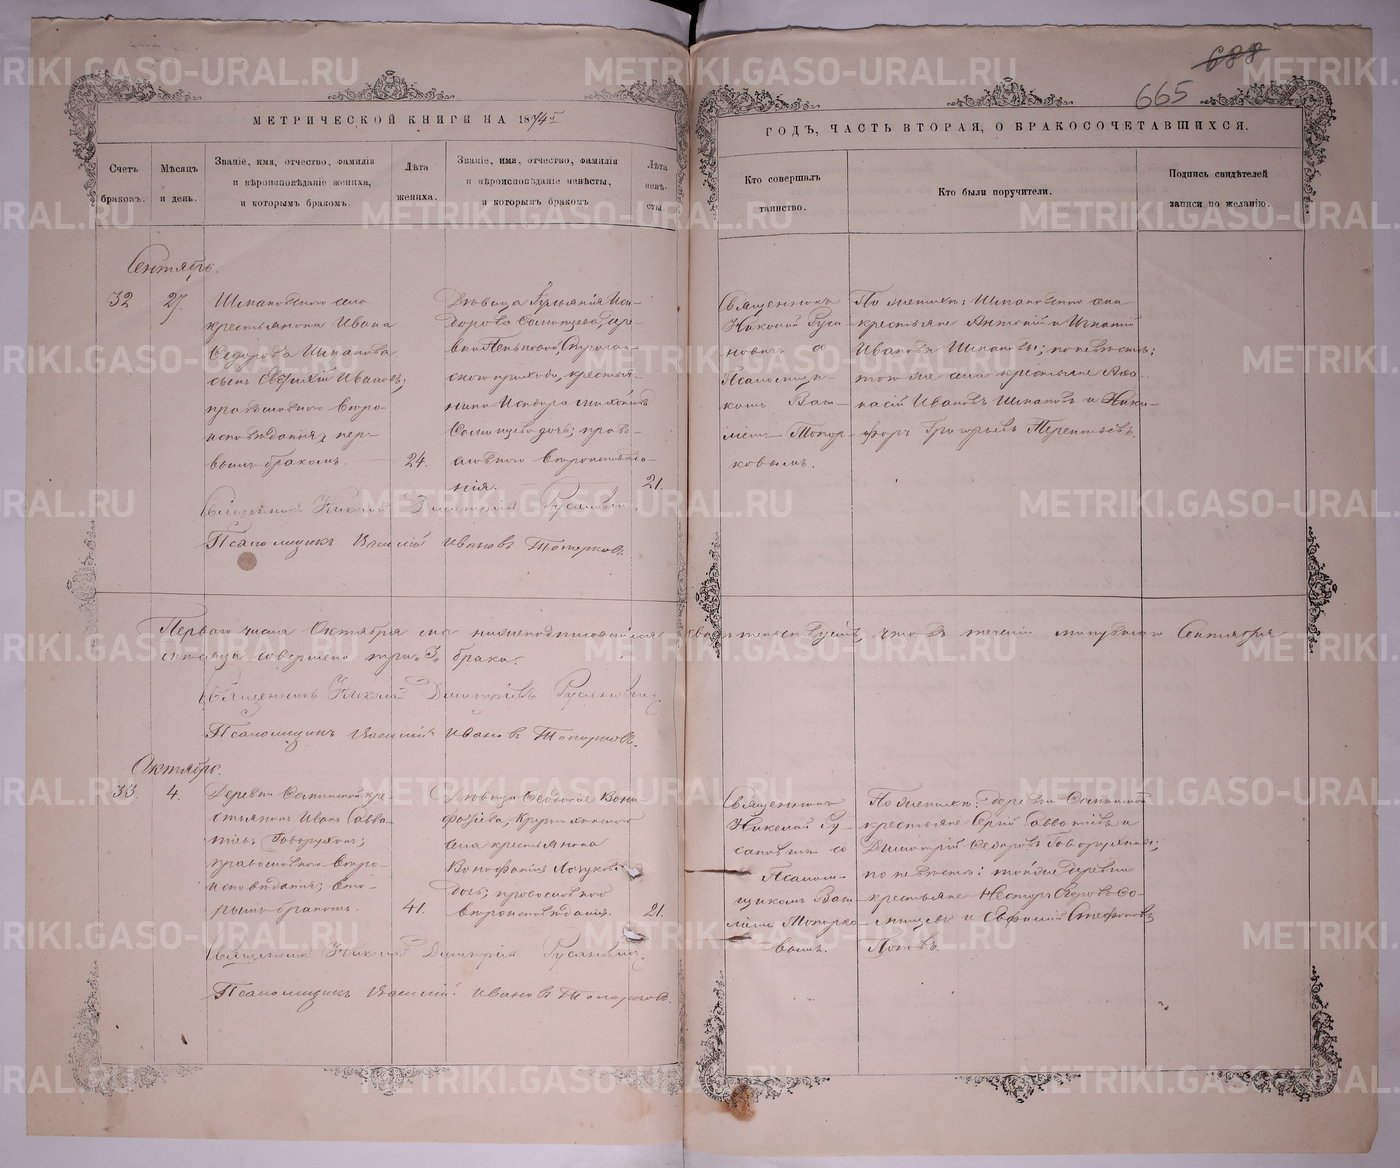 688
665
МЕТРИЧЕСКОЙ КНИГИ НА 1874й
ГОДЪ, ЧАСТЬ ВТОРАЯ, О БРАКОСОЧЕТАВШИХСЯ.
Счетъ браковъ.
Мѣсяцъ и день.
Званіе, имя, отчество, фамилія
и вѣроисповѣданіе жениха,
и которымъ бракомъ.
Лѣта жениха.
Званіе, имя, отчество, фамилія
и вѣроисповѣданіе невѣсты,
и которымъ бракомъ
Лѣта невѣ-
сты.
Кто совершалъ
таинство.
Кто были поручители.
Подпись свидѣтелей
записи по желанію.
Сентябрь.
32
27.
крестьянина Ивана
Сидорова Шипанова
сынъ Ивановъ,
православнаго вѣро-
исповѣданія, пер-
вымъ бракомъ.
24.
Дѣвица
православнаго вѣроисповѣда-
нія.
21.
Священникъ
Николай Руса-
новичъ со
Псаломщи-
комъ Васи-
ліемъ Топор-
ковымъ.
По женихѣ:
крестьяне Антоній и Игнатій
Ивановы Шипановы; по невѣстѣ:
того же села крестьяне Афа-
насій Ивановъ Шипановъ и Ники-
форъ Григорьевъ Терентьевъ.
Священникъ Николай Димитріевъ Русановичъ.
Псаломщикъ Василій Ивановъ Топорковъ.
Перваго числа Октября мы нижеподписавшіеся свидѣтельствуемъ, что въ теченіи минувшаго Сентября
мѣсяца совершено три „3„ брака.
Священникъ Николай Димитріевъ Русановичъ
Псаломщикъ Василій Ивановъ Топорковъ.
Октябрь.
33
4.
Деревни кре-
стьянинъ Иванъ Савва-
тіевъ Говорухинъ;
православнаго вѣро-
исповѣданія; вто-
рымъ бракомъ.
41.
Дѣвица Ѳеодосія Вони-
фатіева,
села крестьянина
Вонифатія
дочь; православнаго
вѣроисповѣданія.
21.
Священникъ
Николай Ру-
сановичъ со
Псалом-
щикомъ Васи-
ліемъ Топорко-
вымъ.
По женихѣ: деревни
крестьяне Сергій Савватіевъ и
Димитрій Сидоровъ Говорухины;
по невѣстѣ: той же деревни
крестьяне Несторъ
и Стефановъ
Поповъ.
Священникъ Николай Димитріевъ Русановичъ.
Псаломщикъ Василій Ивановъ Топорковъ.
METRIKI.GASO-URAL.RU